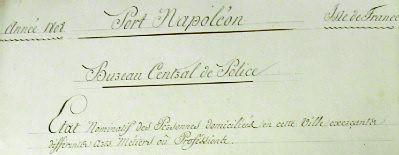 Année 1808 Port Napoléon Isle de France
Bureau Central de Police
Etat Nominatif des Personnes domiciliées en cette Ville exerçantes
differents arts Metiers ou Proféssions